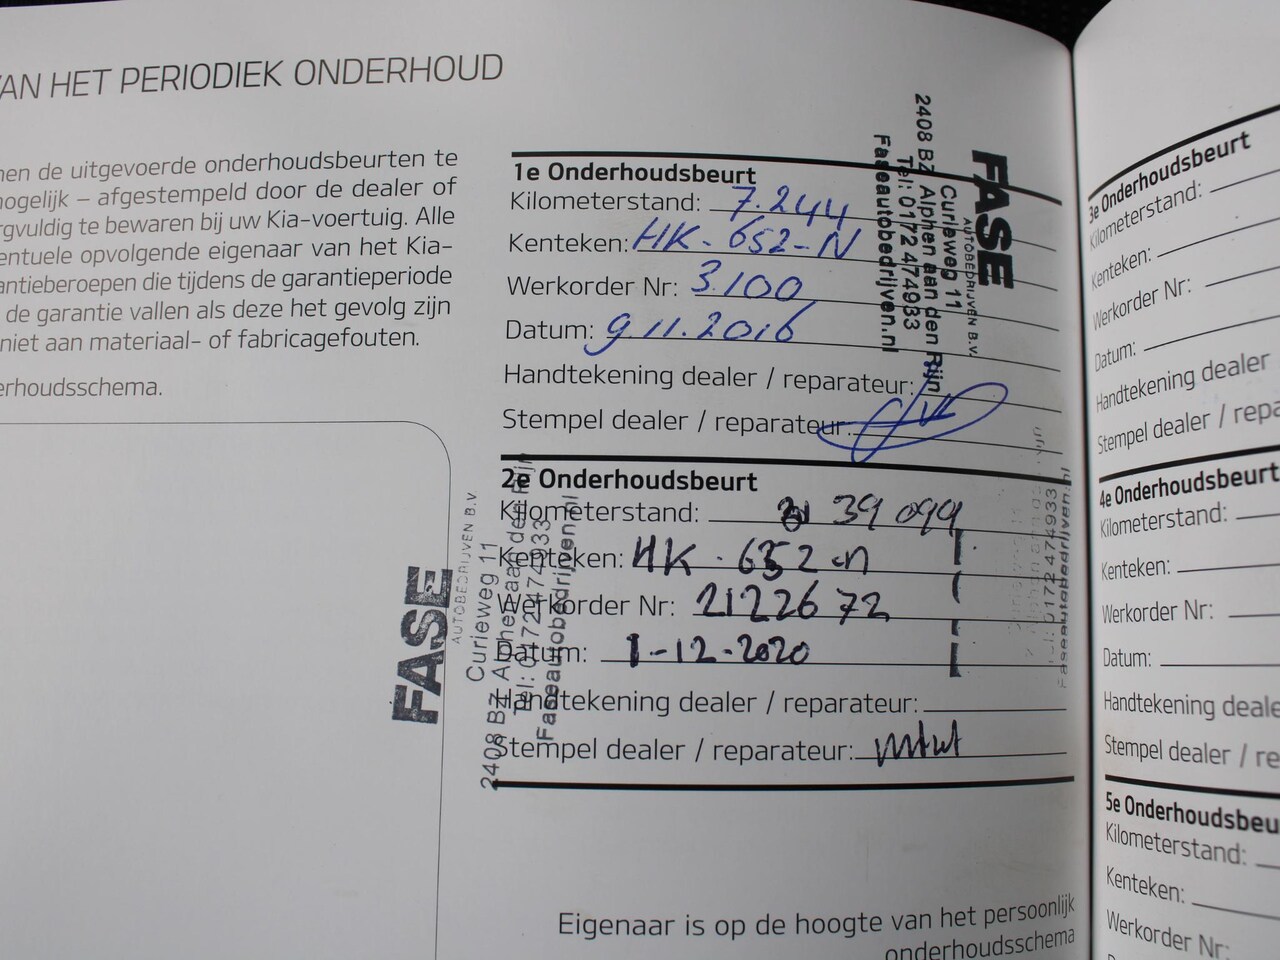 VAN HET PERIODIEK ONDERHOUD
de uitgevoerde onderhoudsbeurten te
mogelijk – afgestempeld door de dealer of
te bewaren bij uw Kia-voertuig. Alle
opvolgende eigenaar van het Kia-
die tijdens de garantieperiode
de garantie vallen als deze het gevolg zijn
niet aan materiaal- of fabricagefouten.
1e Onderhoudsbeurt
Kilometerstand: 7.244
Kenteken: HK-652-N
Werkorder Nr: 3.100
Datum: 9.11.2016
Handtekening dealer / reparateur:
Stempel dealer / reparateur:
FASE
AUTOBEDRIJVEN B.V.
Curieweg 11
2408 BZ Alphen aan den Rijn
Tel: 0172 474933
Faseautobedrijven.nl
2e Onderhoudsbeurt
Kilometerstand: 39 099
Kenteken: HK-652-n
Werkorder Nr: 2122672
Datum: 1-12-2020
Handtekening dealer / reparateur:
Stempel dealer / reparateur:
FASE
AUTOBEDRIJVEN B.V
Curieweg 11
2408 BZ Alphen aan den Rijn
Tel: 0172 474933
Faseautobedrijven.nl
0172 474933
Faseautobedrijven.nl
Eigenaar is op de hoogte van het persoonlijk
onderhoudsschema
3e Onderhoudsbeurt
Kilometerstand:
Kenteken:
Werkorder Nr:
Datum:
Handtekening dealer
Stempel dealer /
4e Onderhoudsbeurt
Kilometerstand:
Kenteken:
Werkorder Nr:
Datum:
Handtekening
Stempel dealer /
5e
Kilometerstand:
Kenteken:
Werkorder Nr: